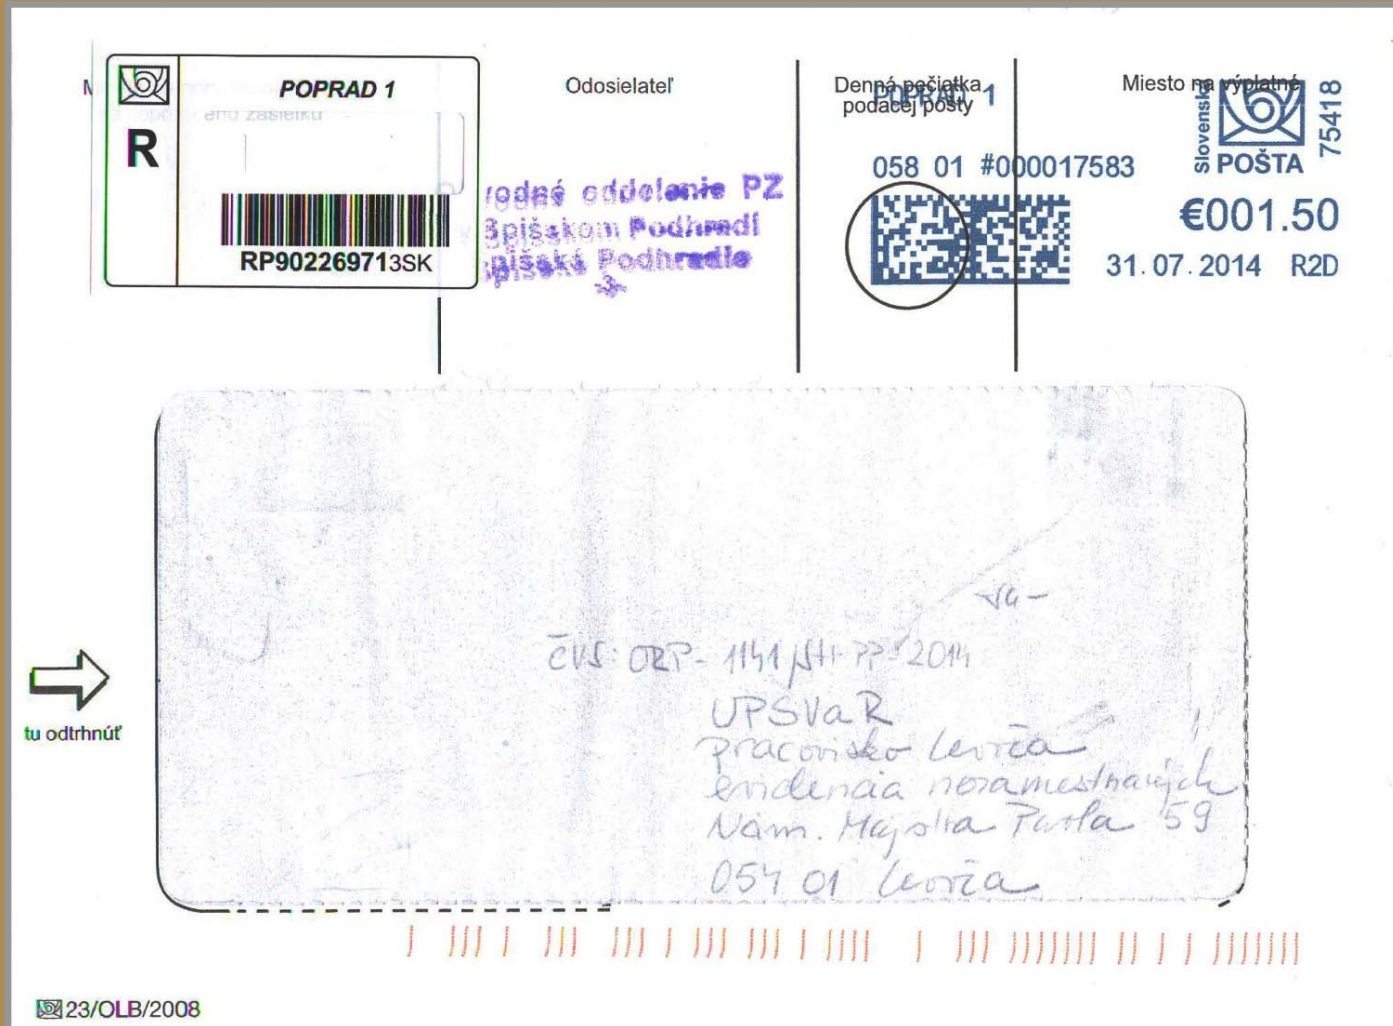 POPRAD 1
R
RP902269713SK
Odosielateľ
vodné oddelenie PZ
v Spišskom Podhradí
Spišské Podhradie
-3-
Denná pečiatka
podacej pošty
POPRAD 1
058 01 #000017583
Miesto na výplatné
Slovenská
POŠTA
75418
€001.50
31.07.2014 R2D
ČVS: ORP-1141/SH-PP-2014
UPSVaR
pracovisko Levoča
evidencia nezamestnaných
Nám. Majstra Pavla 59
054 01 Levoča
tu odtrhnúť
23/OLB/2008